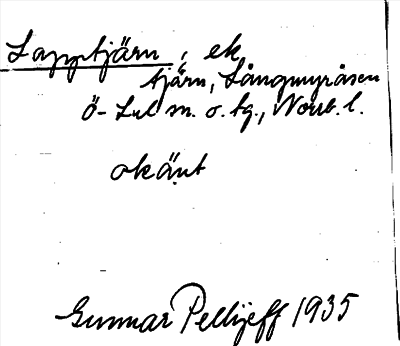 Lapptjärn, ek
tjärn, Långmyråsen
Ö-Lul m. o. tg., Norrb. l.
okänt
Gunnar Pellijeff 1935